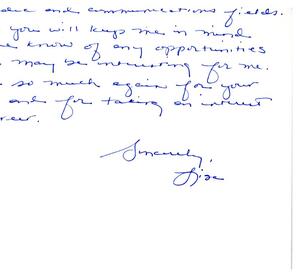 and communications fields.
you will keep me in mind
know of any opportunities
may be interesting for me.
so much again for your
and for taking an interest
Sincerely,
Lisa